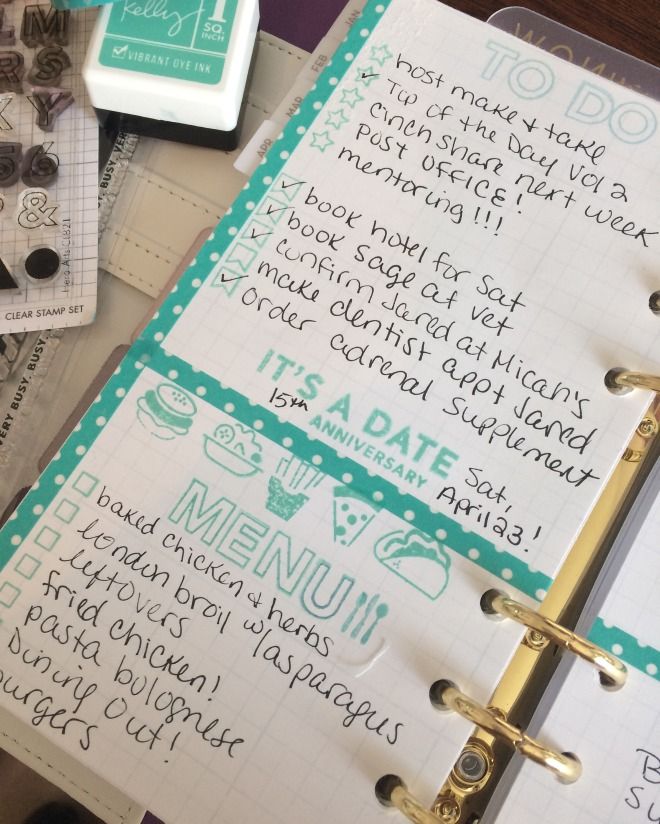 Kelly
1
SQ.
INCH
VIBRANT DYE INK
JAN
FEB
MAR
APR
TO DO
host make & take
Tip of the Day Vol 2
cinch share next week
post office!
mentoring!!!
book hotel for Sat
book sage at vet
confirm Jared at Mican's
make dentist appt Jared
order adrenal supplement
IT'S A DATE
15th ANNIVERSARY
Sat,
April 23!
MENU
baked chicken & herbs
london broil w/asparagus
leftovers
fried chicken!
pasta bolognese
Dining Out!
burgers
M
ERS
XY
56
&
Hero Arts CL821
CLEAR STAMP SET
VERY BUSY. BUSY.
BUSY. VERY